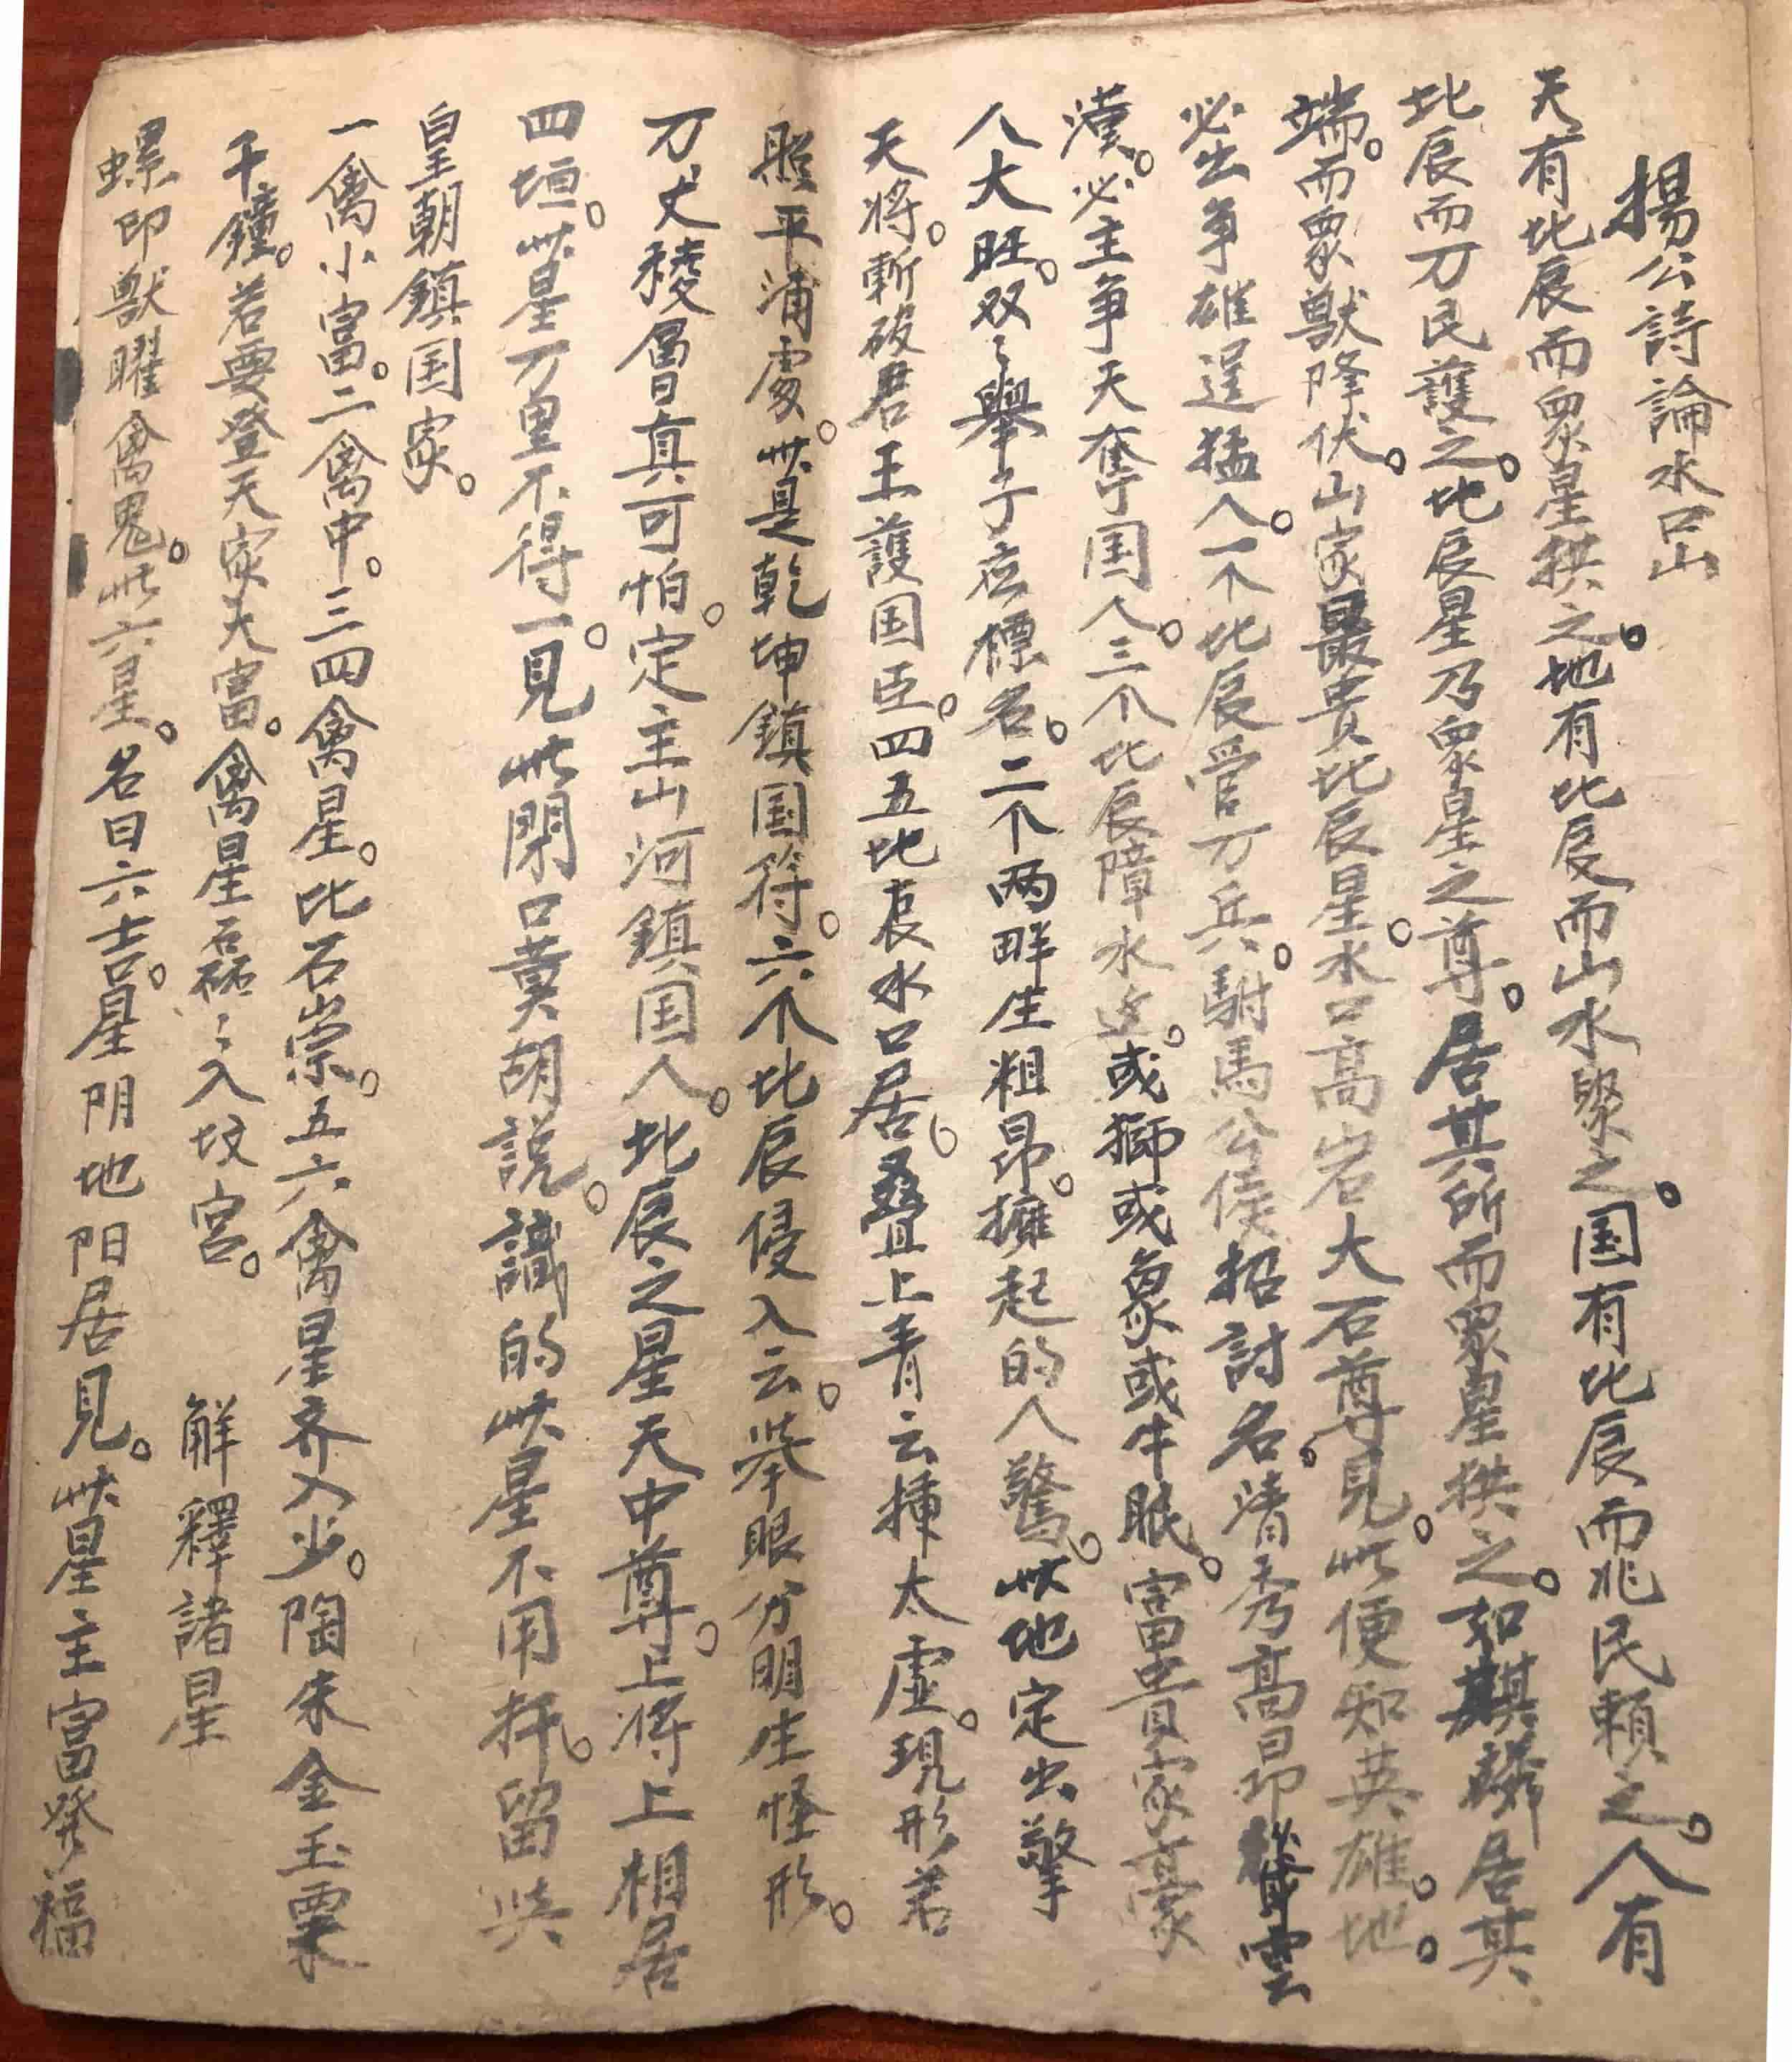 揚公詩論水口山
天有北辰而眾星拱之。地有北辰而山水聚之。国有北辰而兆民賴之。人有
北辰而万民護之。北辰星乃眾星之尊。居其所而眾星拱之。如麒麟居其
端。而眾獸降伏。山家最貴北辰星。水口高岩大石尊。見此便知英雄地。
必出争雄逞猛人。一个北辰管万兵。駙馬公侯招討名。清秀高昂聳雲
漢。必主争天奪国人。三个北辰障水。或獅或象或牛眠。富貴家豪
人大旺。双々舉子応標名。二个两畔生粗昂。擁起的人驚。此地定出擎
天将。斬砍君王護国臣。四五北辰水口居。叠上青云挿太虚。現形若
照平浦處。此是乾坤鎮国符。六个北辰侵入云。举眼分明生怪形。
万丈稜層真可怕。定主山河鎮国人。北辰之星天中尊。上将上相居
四垣。此星万里不得一。見此閉口莫胡説。識的此星不用扦。留与
皇朝鎮国家。
一禽小富。二禽中。三四禽星。比石崇。五六禽星齐入少。陶朱金玉粟
千鐘。若要登天家大富。禽星石磊々入坟宮。 解釋諸星
螺印獣曜禽鬼。此六星。名曰六吉。星阴地阳居見。此星主富發福